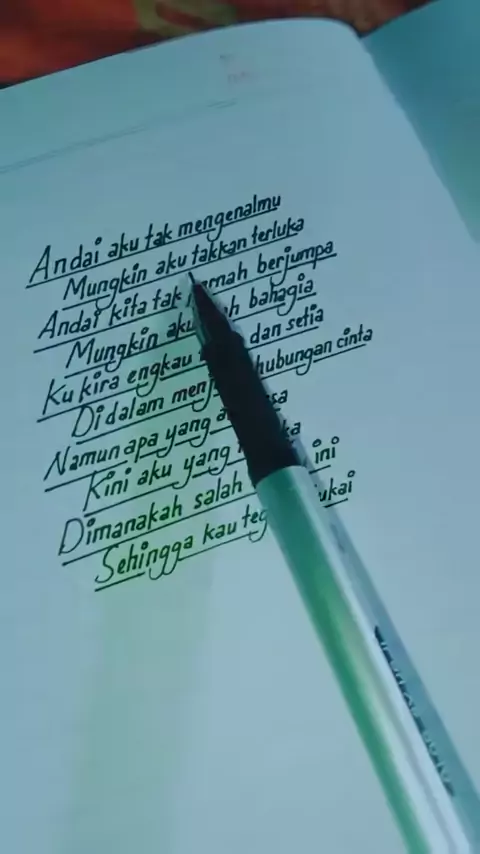 Andai aku tak mengenalmu
Mungkin aku takkan terluka
Andai kita tak berjumpa
Mungkin aku bahagia
Ku kira engkau dan setia
Didalam hubungan cinta
Namun apa yang
Kini aku yang
Dimanakah salah ini
Sehingga kau